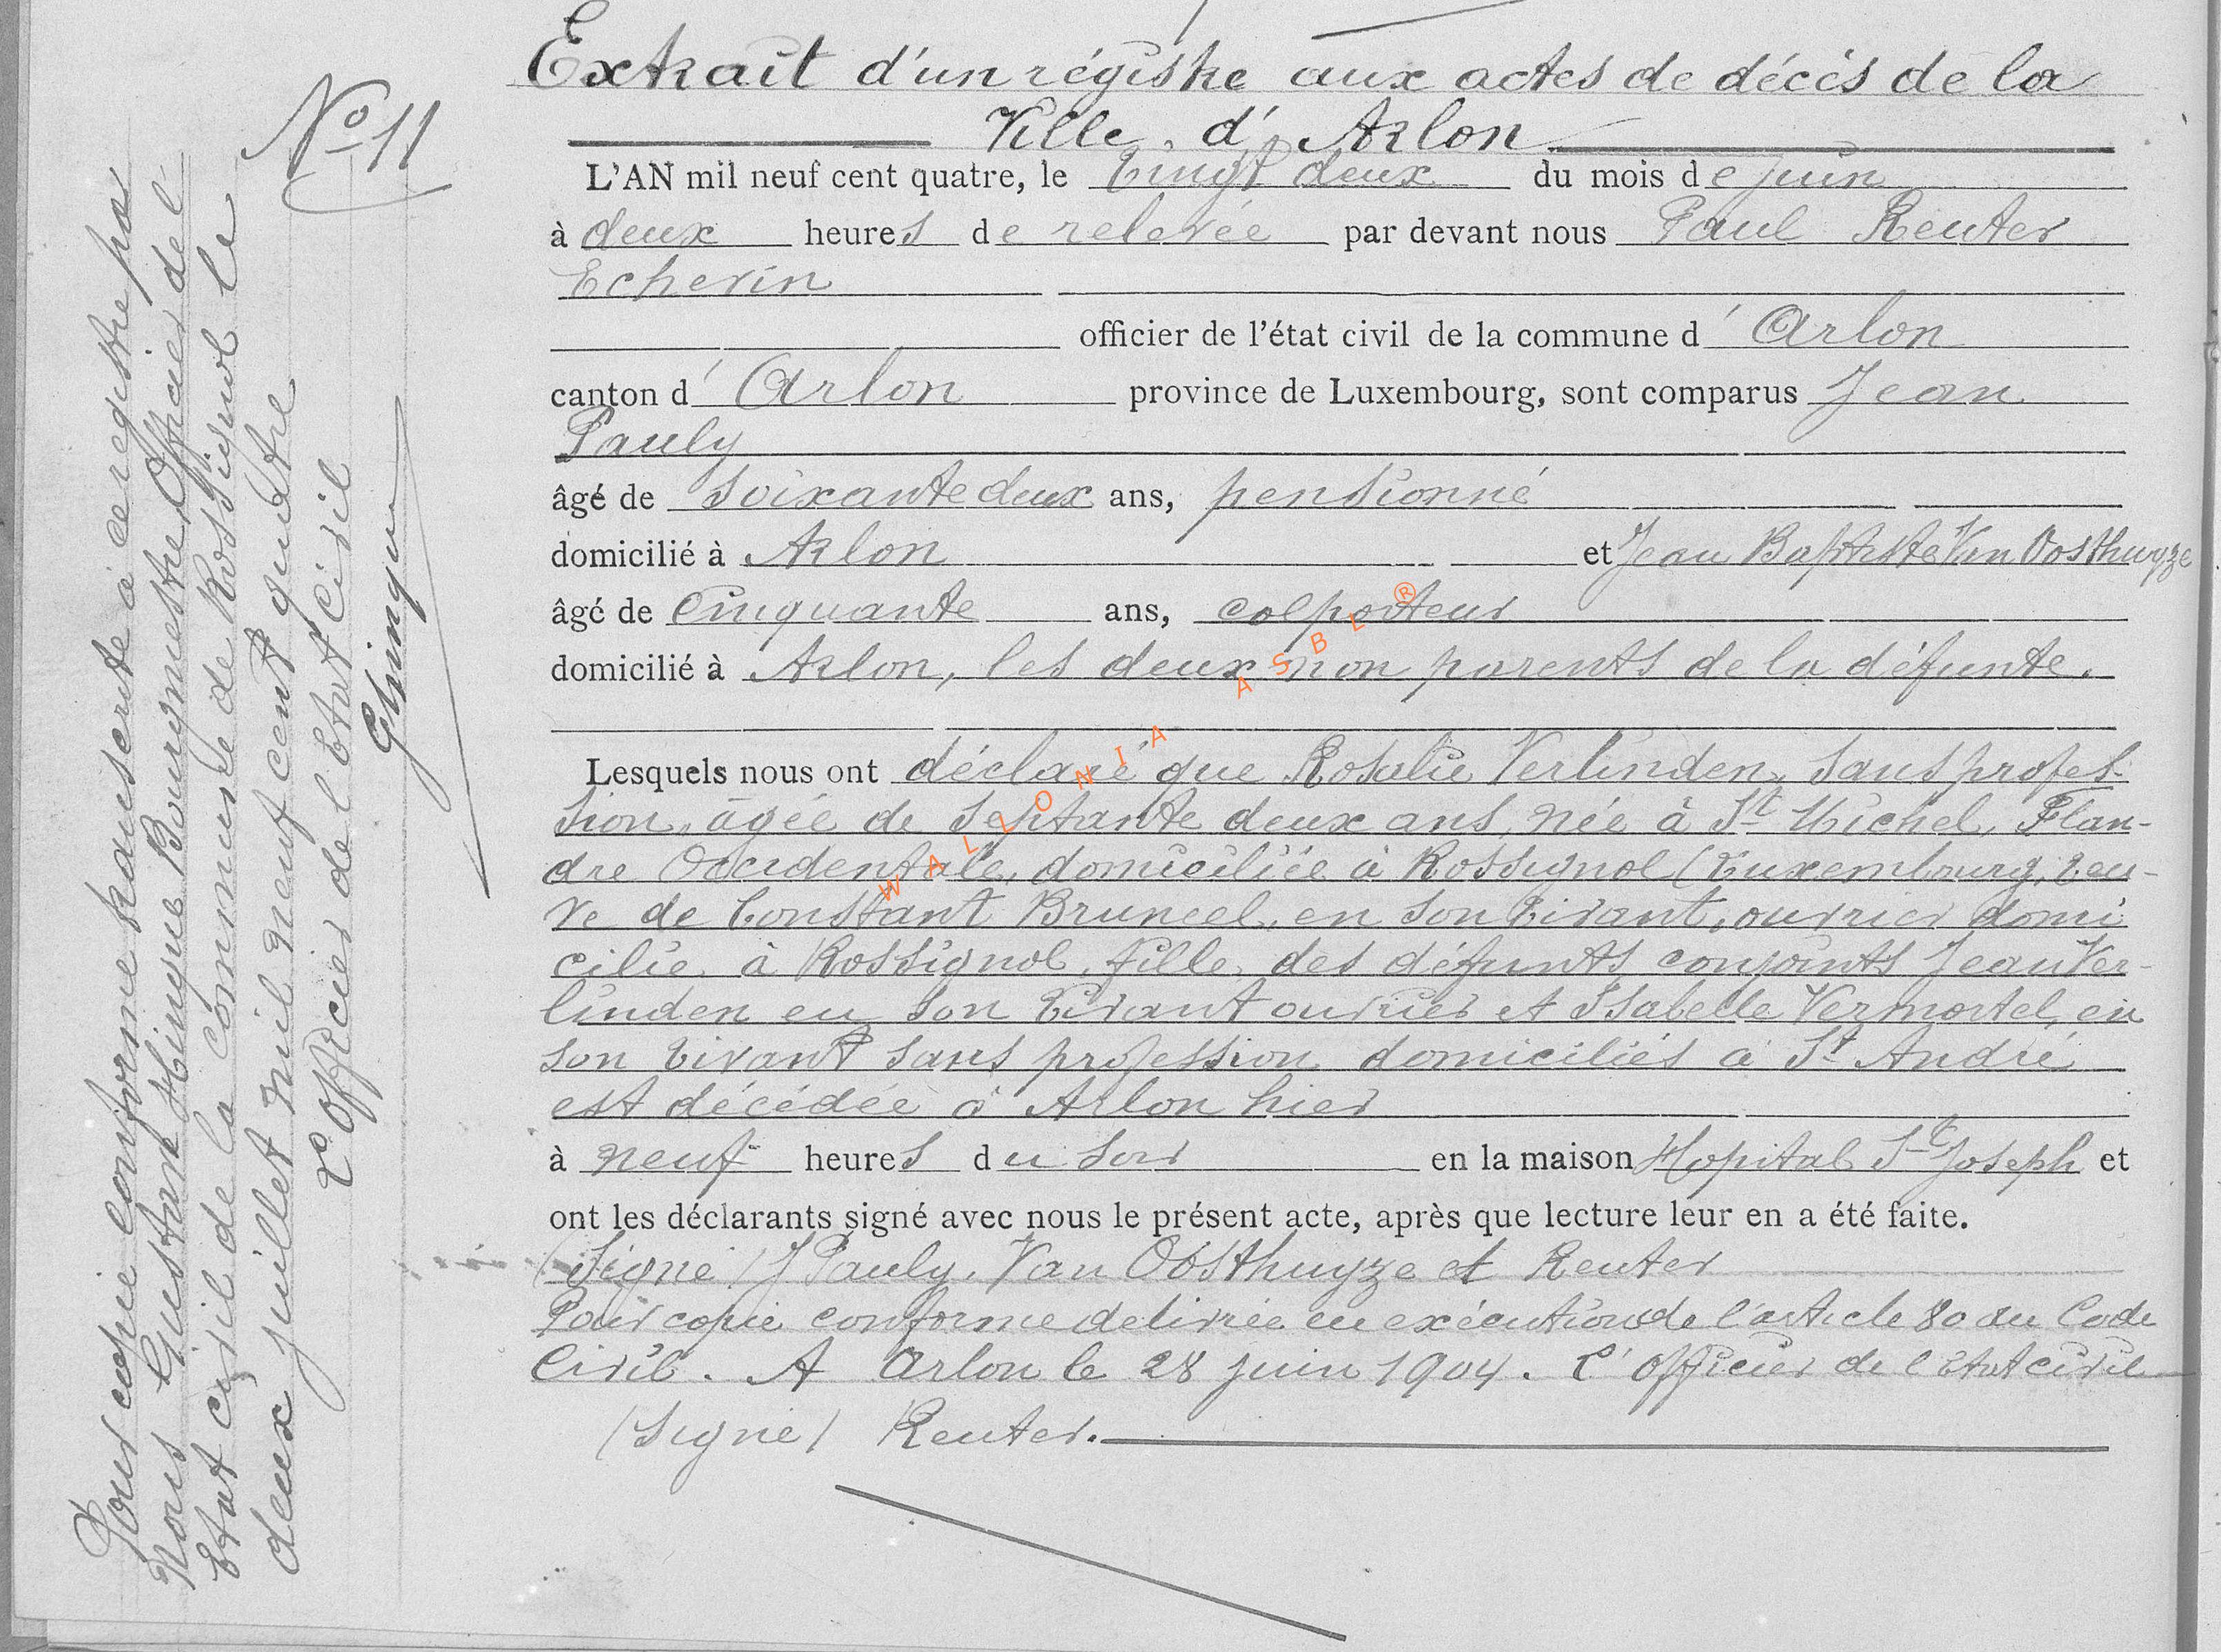 Extrait d'un régistre aux actes de décès de la
Ville d'Arlon
L'AN mil neuf cent quatre, le vingt deux du mois de juin
à deux heures de relevée par devant nous Paul Reuter
Echevin
officier de l'état civil de la commune d'Arlon
canton d'Arlon province de Luxembourg, sont comparus Jean
Pauly
âgé de soixante deux ans, pensionné
domicilié à Arlon et Jean Baptiste Van Oosthuyze
âgé de Cinquante ans, colporteur
domicilié à Arlon, les deux non parents de la défunte.
Lesquels nous ont déclaré que Rosalie Verlinden, sans profes-
sion, âgée de septante deux ans, née à St Michel, Flan-
dre Occidentale, domiciliée à Rossignol (Luxembourg, veu-
ve de Constant Bruneel, en son vivant, ouvrier domi
cilié à Rossignol, fille des défunts conjoints Jean Ver-
linden en son vivant ouvrier et Isabelle Vermortel, en
son vivant sans profession domiciliés à St André
est décédée à Arlon hier
à neuf heures du soir en la maison Hopital St Joseph et
ont les déclarants signé avec nous le présent acte, après que lecture leur en a été faite.
(Signé) J Pauly, Van Oosthuyze et Reuter
Pour copie conforme delivrée en exécution de l'article 80 du Code
Civil. A Arlon le 28 juin 1904. L'Officier de l'Etat civil
(Signé) Reuter.
No 11
Pour copie conforme transcrite à ce registre par
Nous Gustave Hinque Bourgmestre, Officier de l'
Etat civil de la commune de Rossignol le
deux juillet mil neuf cent quatre
L'Officier de l'Etat Civil
GHinque
WALLONIA ASBL ®